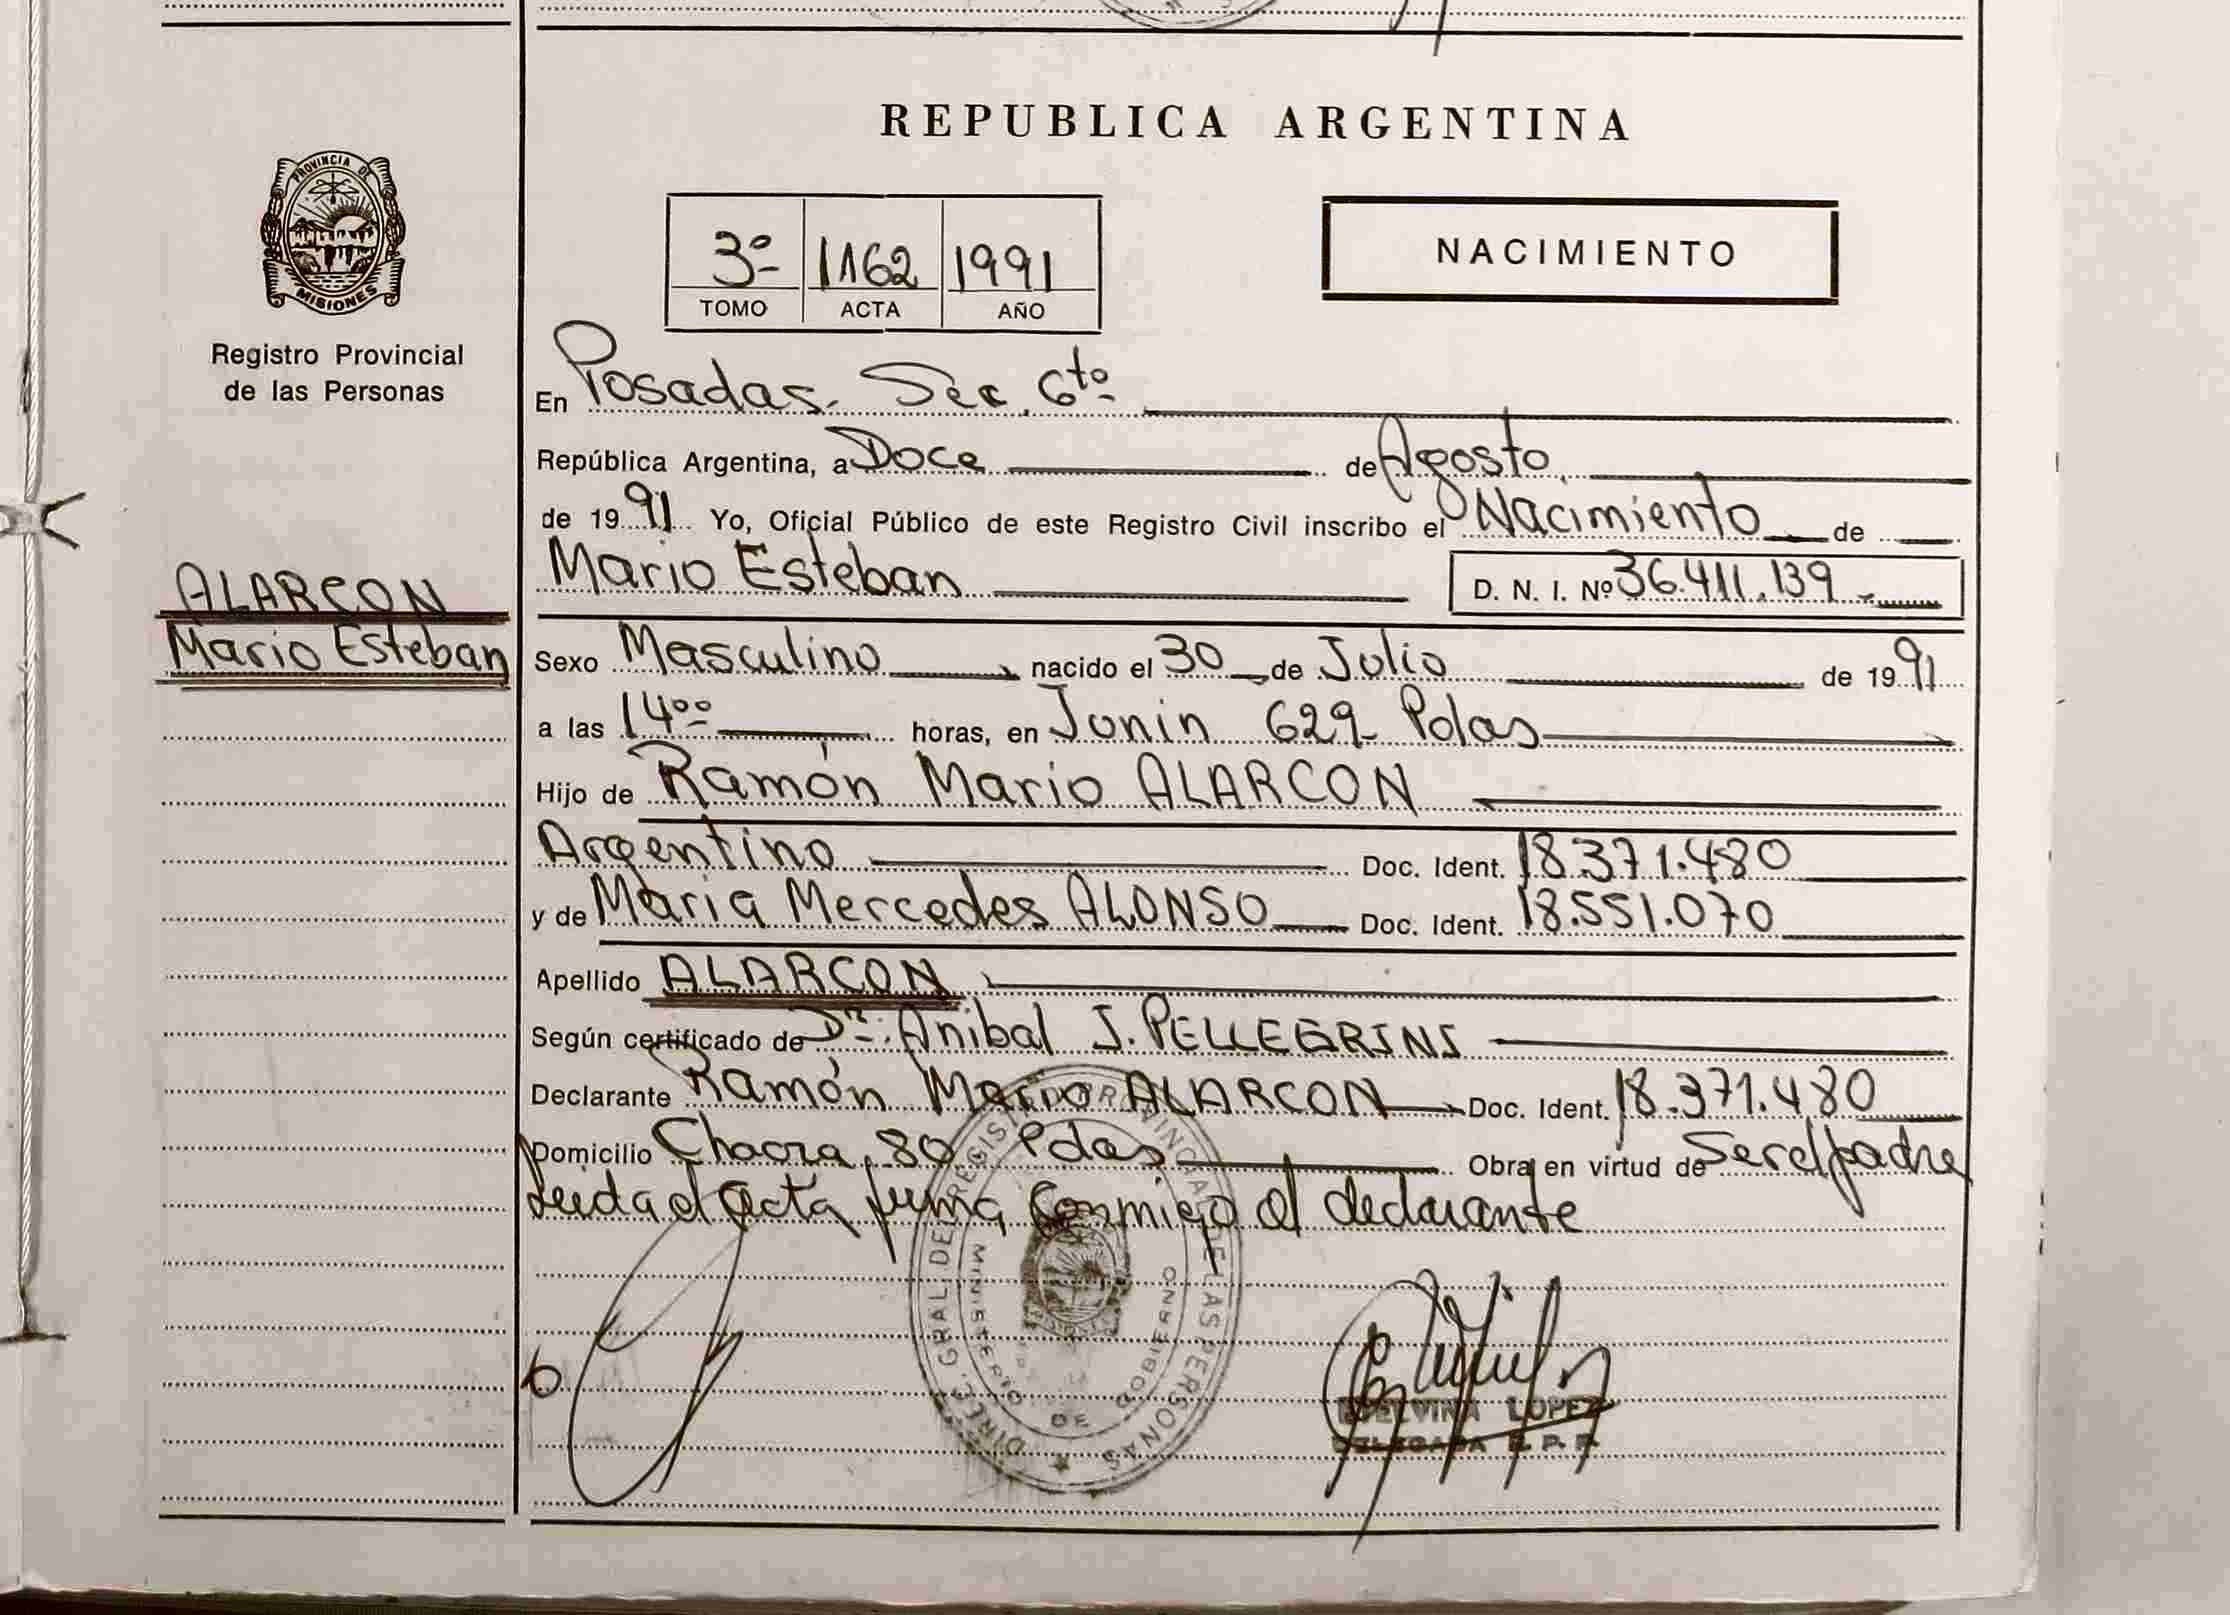 REPUBLICA ARGENTINA
PROVINCIA DE
MISIONES
Registro Provincial
de las Personas
3º 1162 1991
TOMO ACTA AÑO
NACIMIENTO
En Posadas. Sec. 6to
República Argentina, a Doce de Agosto
de 1991 Yo, Oficial Público de este Registro Civil inscribo el Nacimiento de
Mario Esteban D. N. I. Nº 36.411.139
ALARCON
Mario Esteban
Sexo Masculino nacido el 30 de Julio de 1991
a las 14ºº horas, en Junin 629 Pdas
Hijo de Ramón Mario ALARCON
Argentino Doc. Ident. 18.371.480
y de Maria Mercedes ALONSO Doc. Ident. 18.551.070
Apellido ALARCON
Según certificado de Dr. Anibal J. PELLEGRINI
Declarante Ramón Mario ALARCON Doc. Ident. 18.371.480
Domicilio Chacra 80 Pdas Obra en virtud de Ser el padre
Leida el acta firma conmigo el declarante
DIREC. GRAL. DE REGISTRO PROVINCIAL DE LAS PERSONAS
MINISTERIO DE GOBIERNO
LOPEZ
DELEGADA R. P. P.